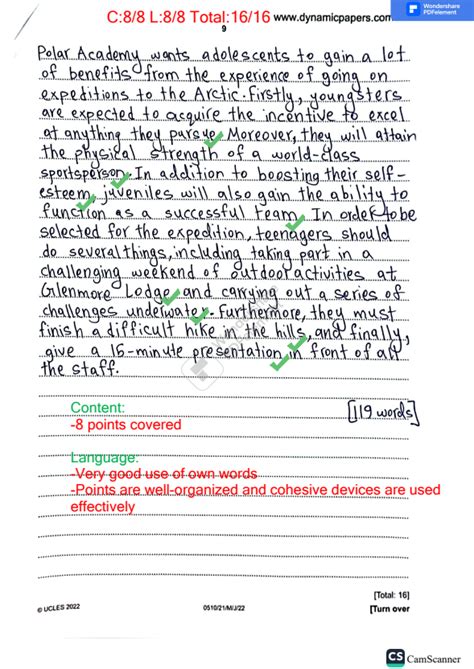 C:8/8 L:8/8 Total:16/16 www.dynamicpapers.com
Wondershare
PDFelement
9
Polar Academy wants adolescents to gain a lot
of benefits from the experience of going on
expeditions to the Arctic. Firstly, youngsters
are expected to acquire the incentive to excel
at anything they pursue. Moreover, they will attain
the physical strength of a world-class
sportsperson. In addition to boosting their self-
esteem, juveniles will also gain the ability to
function as a successful team. In order to be
selected for the expedition, teenagers should
do several things, including taking part in a
challenging weekend of outdoor activities at
Glenmore Lodge and carrying out a series of
challenges underwater. Furthermore, they must
finish a difficult hike in the hills, and finally,
give a 15-minute presentation in front of all
the staff.
Content:
-8 points covered
[119 words]
Language:
-Very good use of own words
-Points are well-organized and cohesive devices are used
effectively
[Total: 16]
© UCLES 2022
0510/21/M/J/22
[Turn over
CS CamScanner